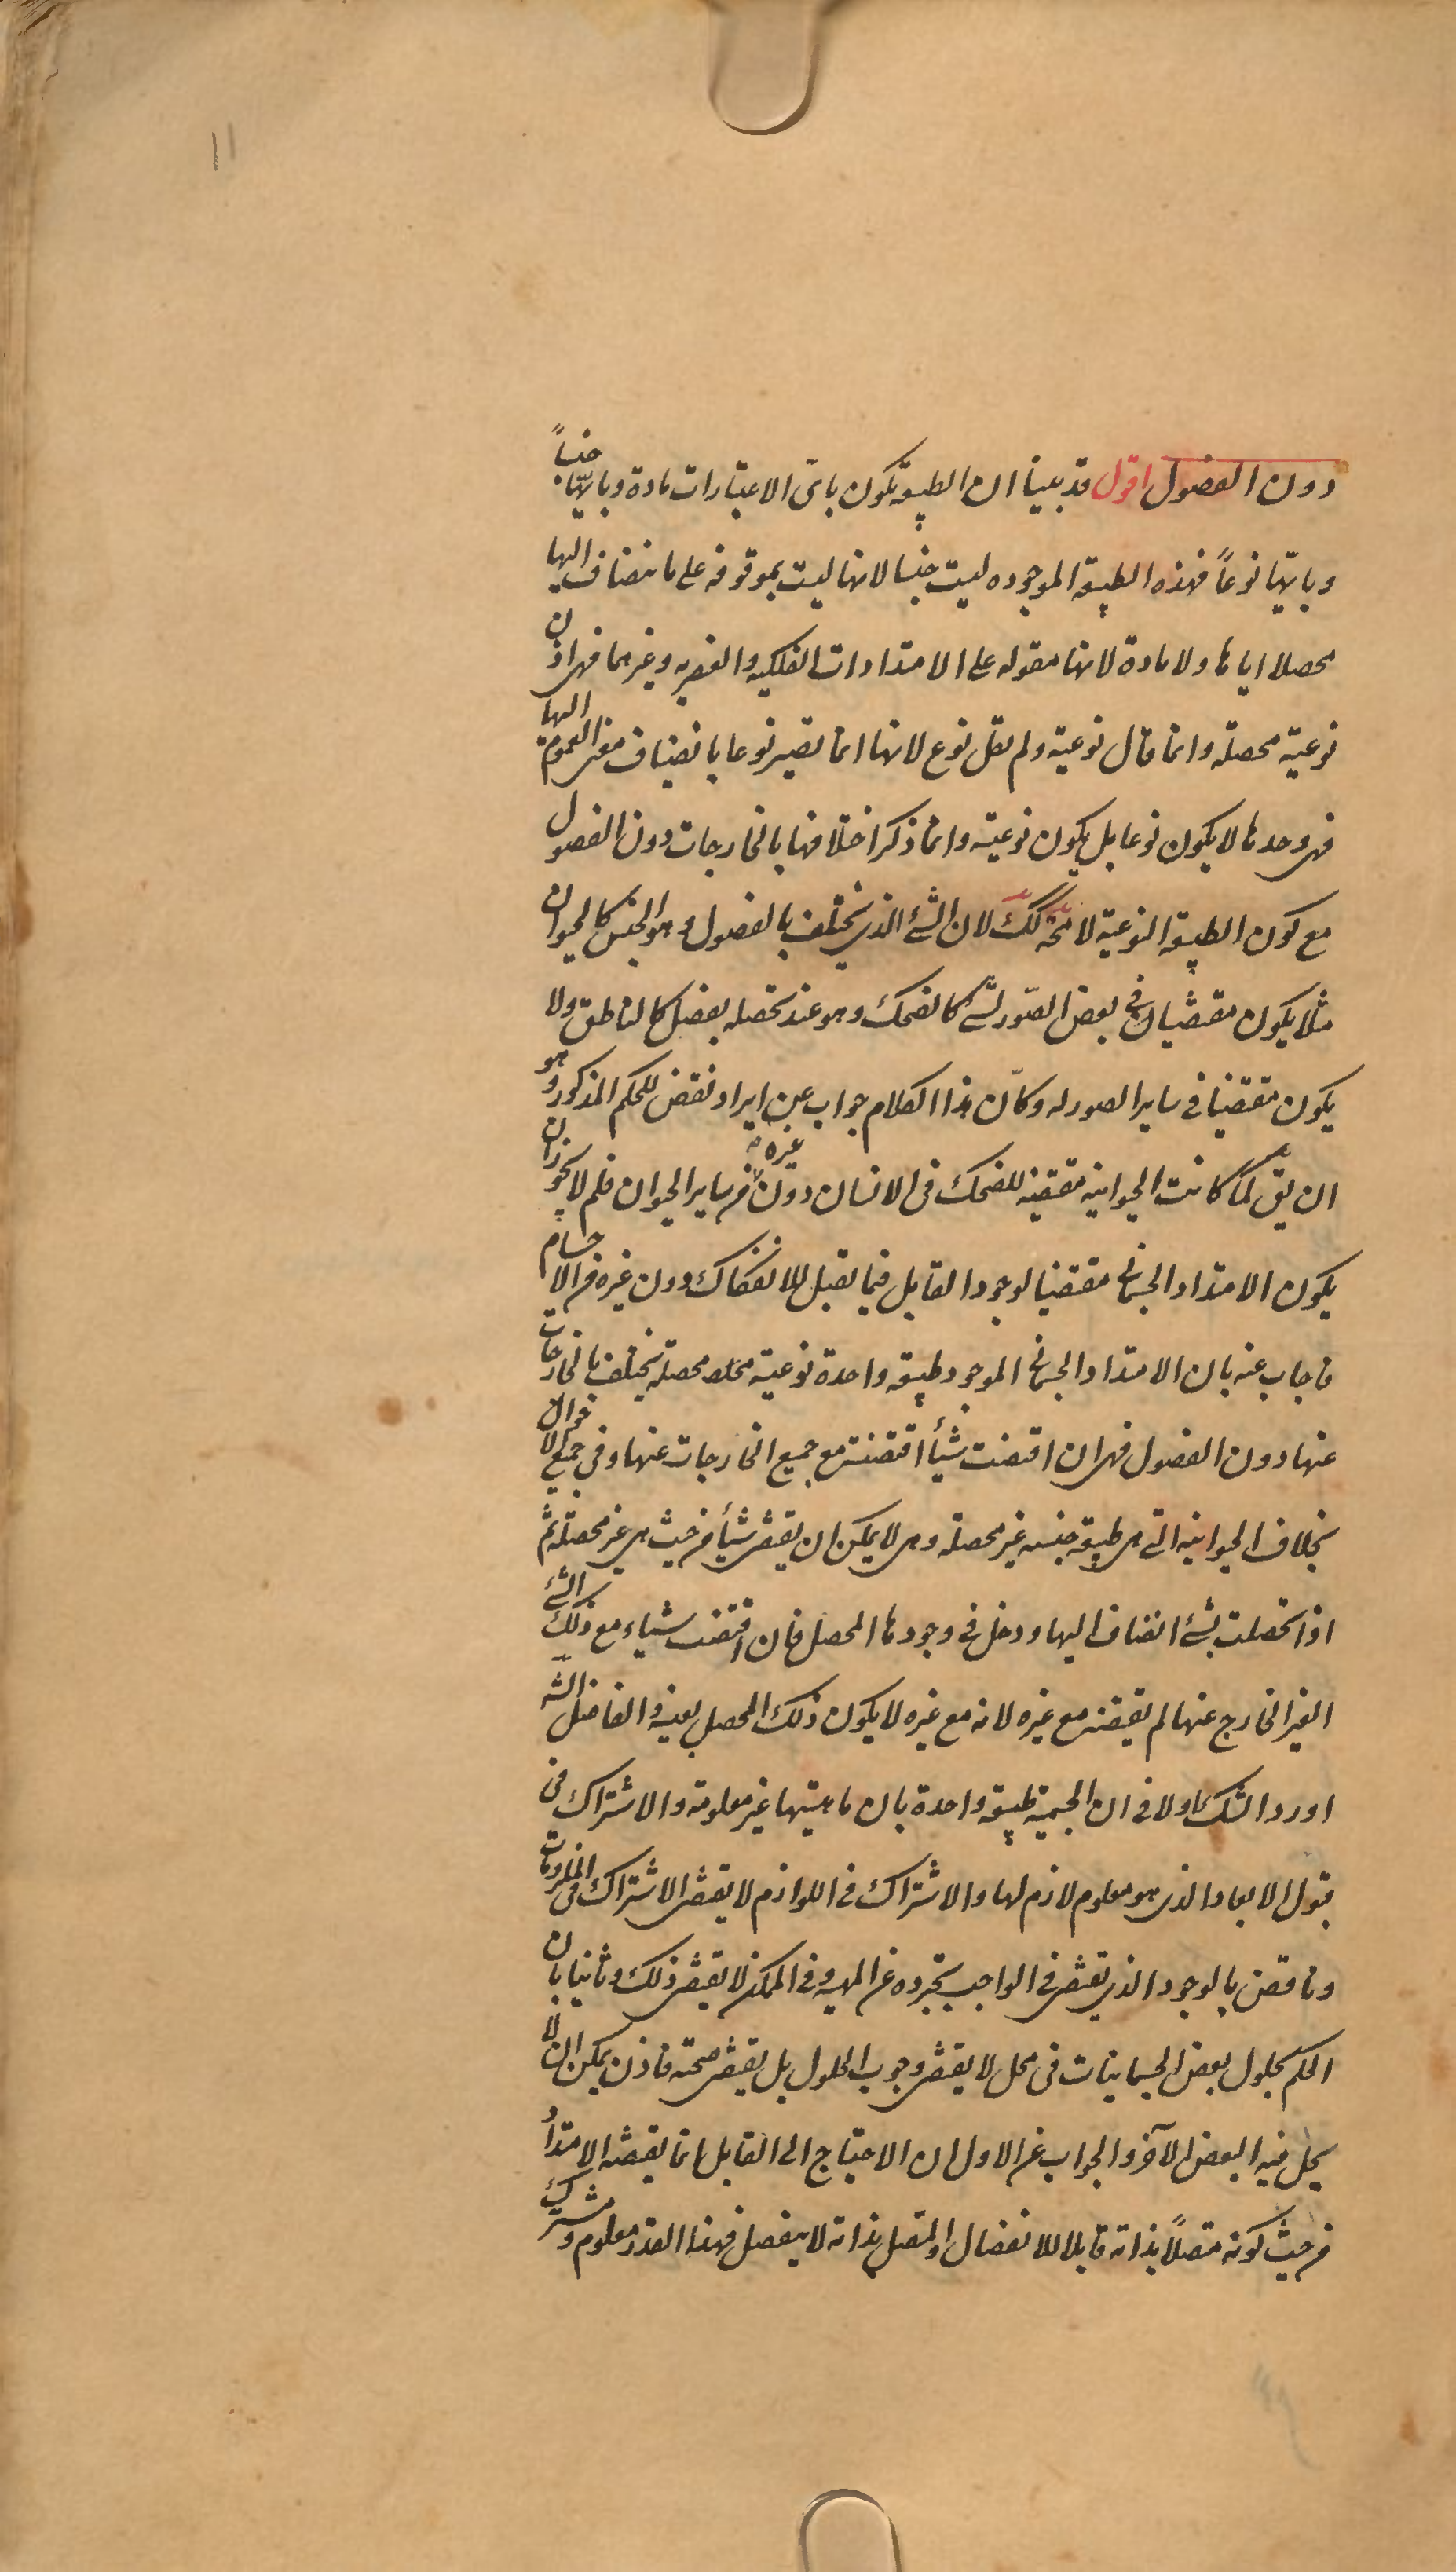 ١١
دون الفصول اقول قد بينا ان الطبيعة تكون باىّ الاعتبارات مادة وبايّها جنساً
وبايّها نوعاً فهذه الطبيعة الموجوده ليست جنسا لانها ليست بموقوفه على ما ينضاف اليها
محصلا اياها ولا مادة لانها مقوله على الامتدادات الفلكيه والعنصريه وغيرهما فهى اذن
نوعية محصله وانما قال نوعية ولم يقل نوع لانها انما تصير نوعا بانضياف معنى العموم اليها
فهى وحدها لا يكون نوعا بل يكون نوعية وانما ذكر اختلافها بالخارجات دون الفصول
مع كون الطبيعة النوعية لامحة كك لان الشئ الذى يختلف بالفصول وهو الجنس كالحيوان
مثلا يكون مقتضيا فى بعض الصّور لشئ كالضحك وهو عند تحصله بفصل كالناطق ولا
يكون مقتضيا فى ساير الصور له وكانّ هذا الكلام جواب عن ايراد نقض للحكم المذكور وهو
ان يق لمّا كانت الحيوانيه مقتضية للضحك فى الانسان دون غيره من ساير الحيوان فلم لا يجوز ان
يكون الامتداد الجسمانى مقتضيا لوجود القابل فيما يقبل للانفكاك دون غيره من الاجسام
فاجاب عنه بان الامتداد الجسمانى الموجود طبيعة واحدة نوعية محصله يختلف بالخارجات
عنها دون الفصول فهى ان اقتضت شيأ اقتضته مع جميع الخارجات عنها وفى جميع الاحوال
بخلاف الحيوانيه التى هى طبيعة جنسه غير محصله وهى لا يمكن ان يقتضى شيأ من حيث هى غير محصله ثم
اذا تحصلت بشئ انضاف اليها ودخل فى وجودها المحصل فان اقتضت شياء مع ذلك الشئ
الغير الخارج عنها لم يقتضه مع غيره لانه مع غيره لا يكون ذلك المحصل بعينه والفاضل الشه
اورد الشك اولا فى ان الجسمية طبيعة واحدة بان ماهيتها غير معلومة والاشتراك فى
قبول الابعاد الذى هو معلوم لازم لها والاشتراك فى اللوازم لا يقتضى الاشتراك فى الملزومات
وناقض بالوجود الذى يقتضى فى الواجب تجرده عن المهيه وفى الممكن لا يقتضى ذلك وثانيا بان
الحكم بحلول بعض الجسمانيات فى محل لا يقتضى وجوب الحلول بل يقتضى صحته فاذن يمكن ان لا
يحل فيه البعض الآخر والجواب عن الاول ان الاحتياج الى القابل انما يقتضيه الامتداد
من حيث كونه متصلاً بذاته قابلا للانفصال والمتصل بذاته لا ينفصل فهذا القدر معلوم ومشترك